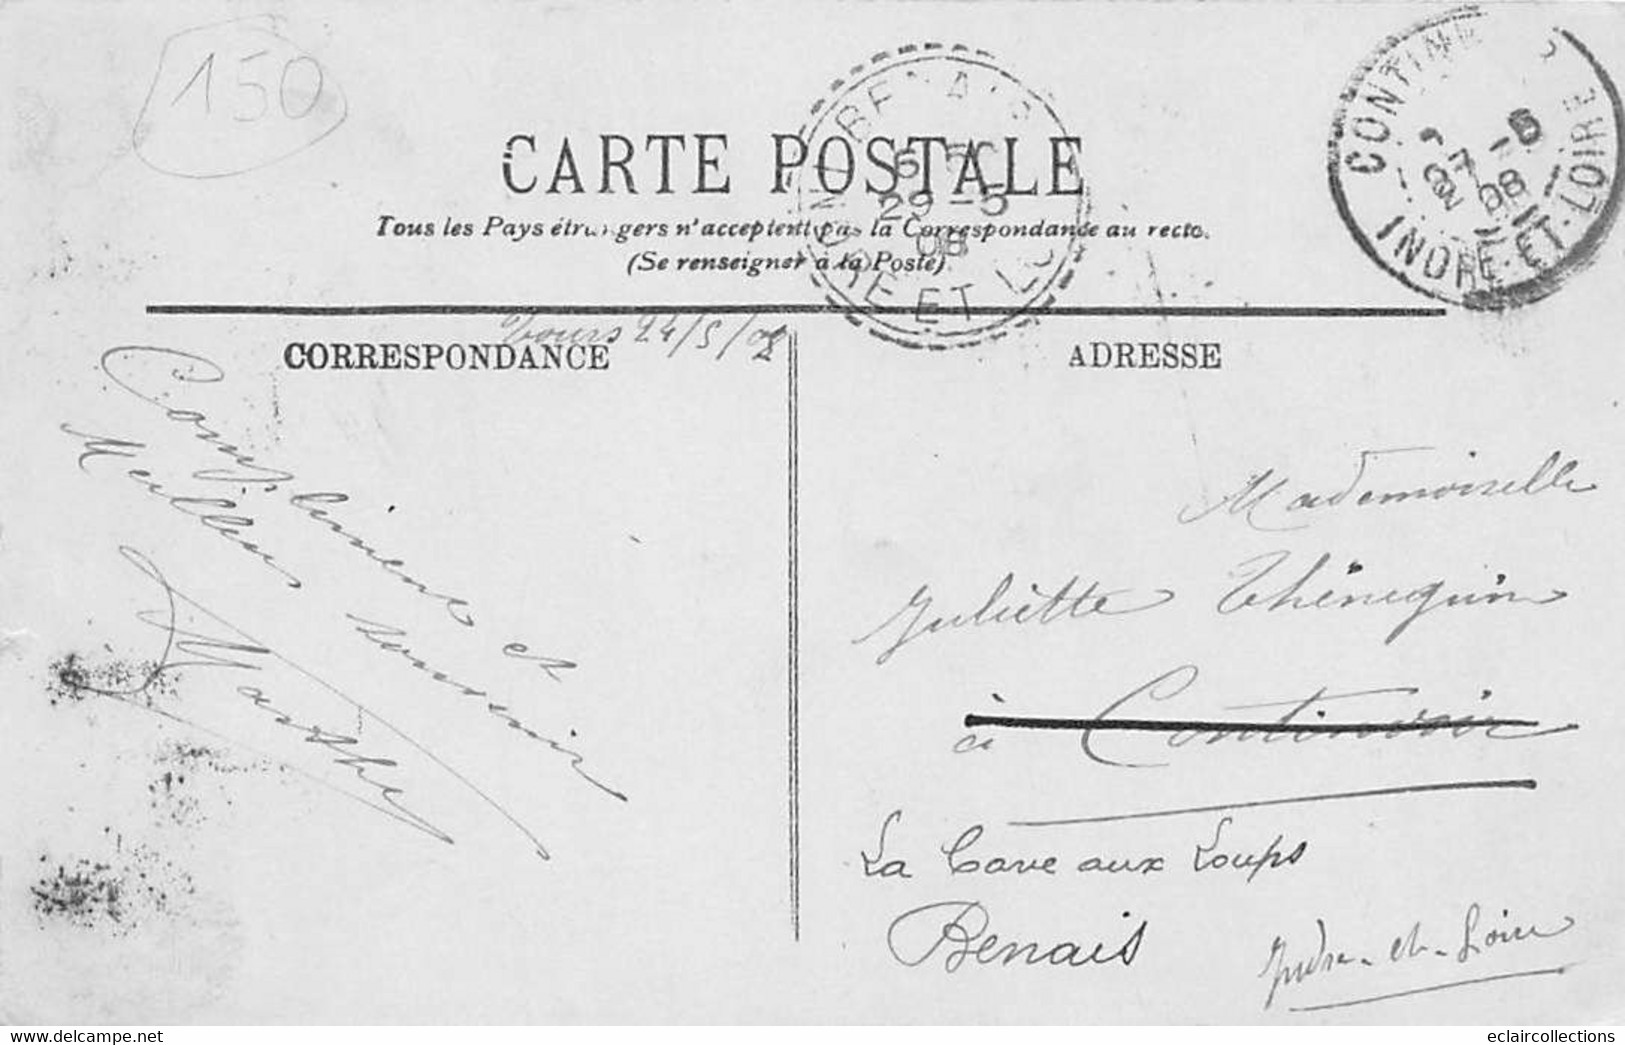 150
CARTE POSTALE
Tous les Pays étrangers n'acceptent pas la Correspondance au recto.
(Se renseigner à la Poste)
BENAIS
29-5
08
ET LO
CONTIN
08
INDRE-ET-LOIRE
CORRESPONDANCE
Tours 24/5/08
ADRESSE
Compliments et
Meilleur souvenir
Marthe
Mademoiselle
Juliette Thénequin
à Continvoir
La Cave aux Loups
Benais
Indre-et-Loire
eclaircollections